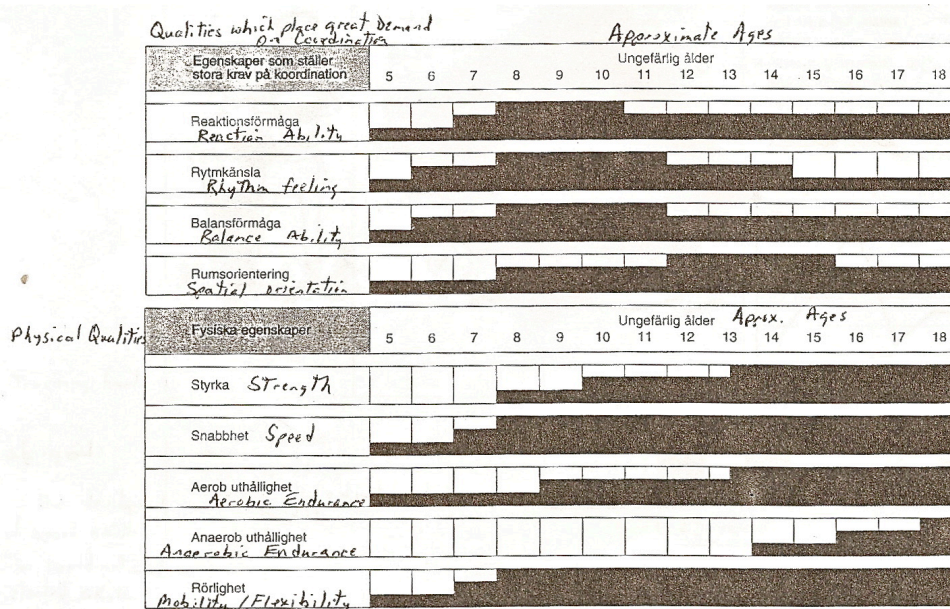 Qualities which place great Demand
on Coordination
Approximate Ages
Egenskaper som ställer
stora krav på koordination
Ungefärlig ålder
5 6 7 8 9 10 11 12 13 14 15 16 17 18
Reaktionsförmåga
Reaction Ability
Rytmkänsla
Rhythm feeling
Balansförmåga
Balance Ability
Rumsorientering
Spatial orientation
Physical Qualities
Fysiska egenskaper
Ungefärlig ålder Aprox. Ages
5 6 7 8 9 10 11 12 13 14 15 16 17 18
Styrka Strength
Snabbhet Speed
Aerob uthållighet
Aerobic Endurance
Anaerob uthållighet
Anaerobic Endurance
Rörlighet
Mobility / Flexibility